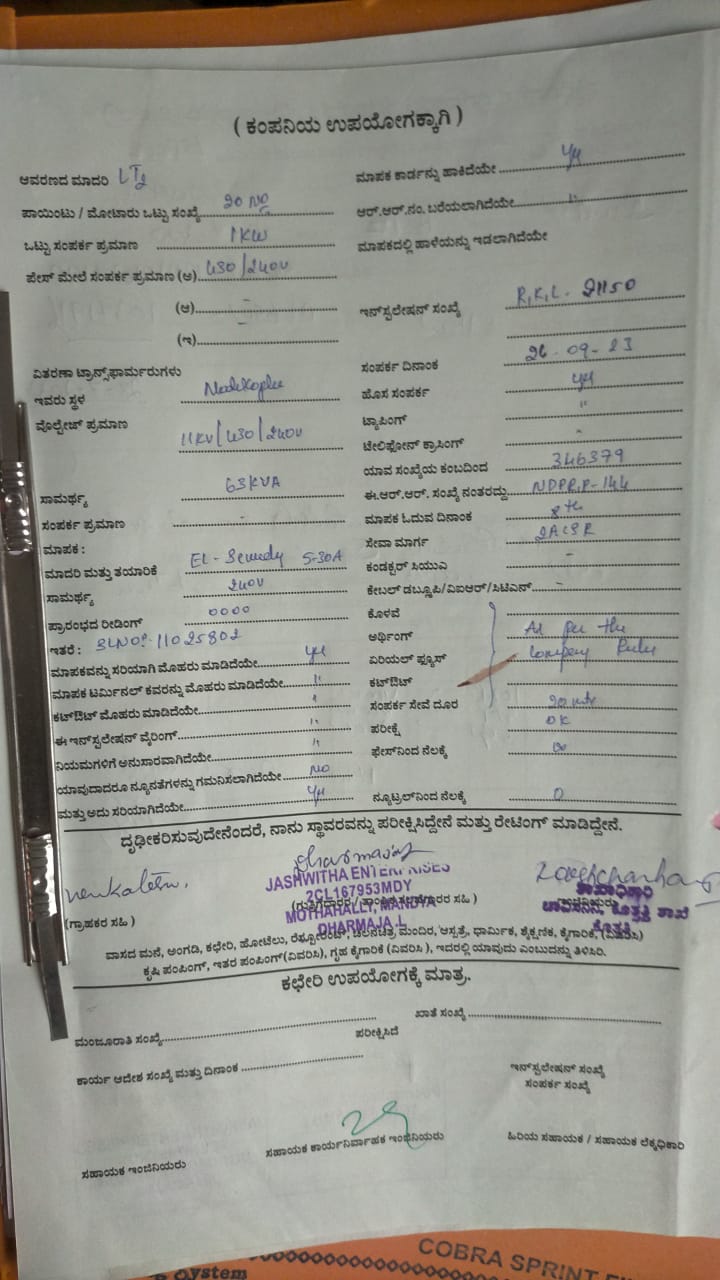 ( ಕಂಪನಿಯ ಉಪಯೋಗಕ್ಕಾಗಿ )
ಆವರಣದ ಮಾದರಿ LT2
ಮಾಪಕ ಕಾರ್ಡನ್ನು ಹಾಕಿದೆಯೇ
ಪಾಯಿಂಟು / ಮೋಟಾರು ಒಟ್ಟು ಸಂಖ್ಯೆ 20 NO
ಆರ್.ಆರ್.ನಂ. ಬರೆಯಲಾಗಿದೆಯೇ "
ಒಟ್ಟು ಸಂಪರ್ಕ ಪ್ರಮಾಣ 1KW
ಮಾಪಕದಲ್ಲಿ ಹಾಳೆಯನ್ನು ಇಡಲಾಗಿದೆಯೇ
ಫೇಸ್ ಮೇಲೆ ಸಂಪರ್ಕ ಪ್ರಮಾಣ (ಅ) 430/240V
(ಆ) -
ಇನ್‌ಸ್ಟಲೇಷನ್ ಸಂಖ್ಯೆ R.K.L. 21150
(ಇ) -
ವಿತರಣಾ ಟ್ರಾನ್ಸ್‌ಫಾರ್ಮರುಗಳು
ಸಂಪರ್ಕ ದಿನಾಂಕ 26-09-23
ಇವರು ಸ್ಥಳ
ಹೊಸ ಸಂಪರ್ಕ
ವೋಲ್ಟೇಜ್ ಪ್ರಮಾಣ 11KV/430/240V
ಟ್ಯಾಪಿಂಗ್ "
ಟೇಲಿಫೋನ್ ಕ್ರಾಸಿಂಗ್ -
ಯಾವ ಸಂಖ್ಯೆಯ ಕಂಬದಿಂದ 346379
ಸಾಮರ್ಥ್ಯ 63KVA
ಈ.ಆರ್.ಆರ್. ಸಂಖ್ಯೆ ನಂತರದ್ದು NDPRP-144
ಸಂಪರ್ಕ ಪ್ರಮಾಣ -
ಮಾಪಕ ಓದುವ ದಿನಾಂಕ 8th
ಮಾಪಕ :
ಸೇವಾ ಮಾರ್ಗ 2ACSR
ಮಾದರಿ ಮತ್ತು ತಯಾರಿಕೆ 5-30A
ಕಂಡಕ್ಟರ್ ಸಿಯುಎ -
ಸಾಮರ್ಥ್ಯ 240V
ಕೇಬಲ್ ಡಬ್ಲೂಪಿ/ವಿಐಆರ್/ಸಿಟಿಎನ್ -
ಪ್ರಾರಂಭದ ರೀಡಿಂಗ್ 0000
ಕೊಳವೆ
ಇತರೆ : SLNO:-11025802
ಅರ್ಥಿಂಗ್ As per the
ಮಾಪಕವನ್ನು ಸರಿಯಾಗಿ ಮೊಹರು ಮಾಡಿದೆಯೇ
ಏರಿಯಲ್ ಫ್ಯೂಸ್ Company Rules
ಮಾಪಕ ಟರ್ಮಿನಲ್ ಕವರನ್ನು ಮೊಹರು ಮಾಡಿದೆಯೇ "
ಕಟ್‌ಔಟ್
ಕಟ್‌ಔಟ್ ಮೊಹರು ಮಾಡಿದೆಯೇ "
ಸಂಪರ್ಕ ಸೇವೆ ದೂರ 20 mtr
ಈ ಇನ್‌ಸ್ಟಲೇಷನ್ ವೈರಿಂಗ್ "
ಪರೀಕ್ಷೆ OK
ನಿಯಮಗಳಿಗೆ ಅನುಸಾರವಾಗಿದೆಯೇ "
ಫೇಸ್‌ನಿಂದ ನೆಲಕ್ಕೆ
ಯಾವುದಾದರೂ ನ್ಯೂನತೆಗಳನ್ನು ಗಮನಿಸಲಾಗಿದೆಯೇ NO
ಮತ್ತು ಅದು ಸರಿಯಾಗಿದೆಯೇ
ನ್ಯೂಟ್ರಲ್‌ನಿಂದ ನೆಲಕ್ಕೆ 0
ದೃಢೀಕರಿಸುವುದೇನೆಂದರೆ, ನಾನು ಸ್ಥಾವರವನ್ನು ಪರೀಕ್ಷಿಸಿದ್ದೇನೆ ಮತ್ತು ರೇಟಿಂಗ್ ಮಾಡಿದ್ದೇನೆ.
JASHWITHA ENTERPRISES
2CL167953MDY
ಶಾಖಾಧಿಕಾರಿ
(ಗ್ರಾಹಕರ ಸಹಿ )
MOTHAHALLY, MANDYA
DHARMAJA.L
ವಾಸದ ಮನೆ, ಅಂಗಡಿ, ಕಛೇರಿ, ಹೋಟೆಲು, ರೆಸ್ಟೋರೆಂಟ್, ಚಲನಚಿತ್ರ ಮಂದಿರ, ಆಸ್ಪತ್ರೆ, ಧಾರ್ಮಿಕ, ಶೈಕ್ಷಣಿಕ, ಕೈಗಾರಿಕೆ, (ವಿವರಿಸಿ)
ಕೃಷಿ ಪಂಪಿಂಗ್, ಇತರ ಪಂಪಿಂಗ್(ವಿವರಿಸಿ), ಗೃಹ ಕೈಗಾರಿಕೆ (ವಿವರಿಸಿ ), ಇದರಲ್ಲಿ ಯಾವುದು ಎಂಬುದನ್ನು ತಿಳಿಸಿರಿ.
ಕಛೇರಿ ಉಪಯೋಗಕ್ಕೆ ಮಾತ್ರ.
ಮಂಜೂರಾತಿ ಸಂಖ್ಯೆ
ಖಾತೆ ಸಂಖ್ಯೆ
ಪರೀಕ್ಷಿಸಿದೆ
ಕಾರ್ಯ ಆದೇಶ ಸಂಖ್ಯೆ ಮತ್ತು ದಿನಾಂಕ
ಇನ್‌ಸ್ಟಲೇಷನ್ ಸಂಖ್ಯೆ
ಸಂಪರ್ಕ ಸಂಖ್ಯೆ
ಸಹಾಯಕ ಇಂಜಿನಿಯರು
ಸಹಾಯಕ ಕಾರ್ಯನಿರ್ವಾಹಕ ಇಂಜಿನಿಯರು
ಹಿರಿಯ ಸಹಾಯಕ / ಸಹಾಯಕ ಲೆಕ್ಕಧಿಕಾರಿ
COBRA SPRINT
System